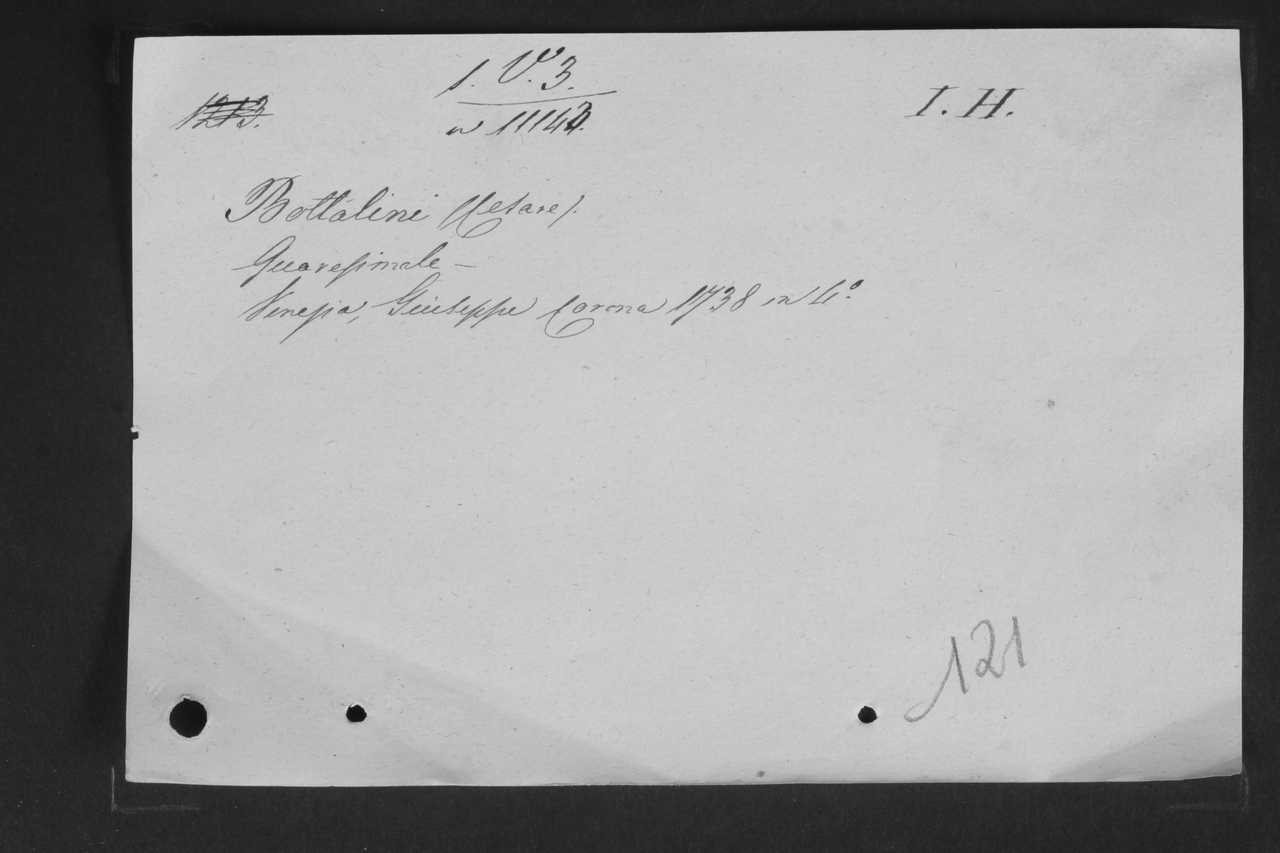 1. V. 3.
1213.
I. H.
n 11142.
Bottalini (Cesare).
Quaresimale —
Venezia, Giuseppe Corona 1738 in 4.°
121